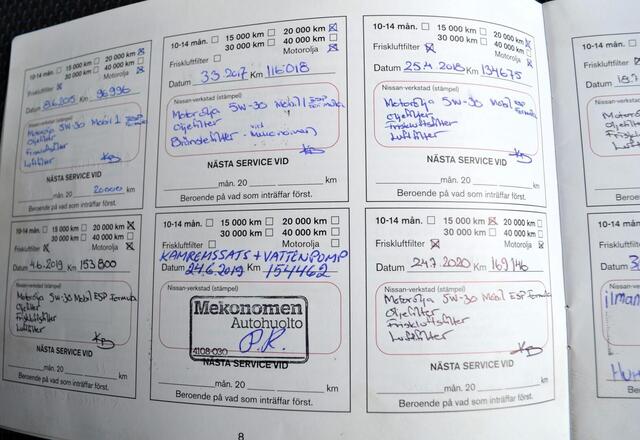 10-14 mån. 15 000 km 20 000 km
30 000 km 40 000 km
Friskluftfilter Motorolja
Datum Km 96996
Nissan-verkstad (stämpel)
Motorolja 5W-30 Mobil 1 ESP formula
Oljefilter
Friskluftsfilter
Luftfilter
KB
NÄSTA SERVICE VID
mån. 20 20000 km
Beroende på vad som inträffar först.
10-14 mån. 15 000 km 20 000 km
30 000 km 40 000 km
Friskluftfilter Motorolja
Datum 3.3.2017 Km 116018
Nissan-verkstad (stämpel)
Motorolja 5W-30 Mobil 1 ESP formula
Oljefilter
Bränslefilter vid Mekonomen
KB
NÄSTA SERVICE VID
mån. 20 km
Beroende på vad som inträffar först.
10-14 mån. 15 000 km 20 000 km
30 000 km 40 000 km
Friskluftfilter Motorolja
Datum 25.4.2018 Km 134675
Nissan-verkstad (stämpel)
Motorolja 5W-30 Mobil ESP formula
Oljefilter
Friskluftsfilter
Luftfilter
KB
NÄSTA SERVICE VID
mån. 20 km
Beroende på vad som inträffar först.
10-14 mån. 15 000 km 20 000 km
30 000 km 40 000 km
Friskluftfilter Motorolja
Datum 4.6.2019 Km 153800
Nissan-verkstad (stämpel)
Motorolja 5W-30 Mobil ESP formula
Oljefilter
Friskluftsfilter
Luftfilter
KB
NÄSTA SERVICE VID
mån. 20 km
Beroende på vad som inträffar först.
10-14 mån. 15 000 km 20 000 km
30 000 km 40 000 km
Friskluftfilter Motorolja
KAMREMSSATS + VATTENPUMP
Datum 24.6.2019 Km 154462
Nissan-verkstad (stämpel)
Mekonomen
Autohuolto
P.R.
4108-030
NÄSTA SERVICE VID
mån. 20 km
Beroende på vad som inträffar först.
10-14 mån. 15 000 km 20 000 km
30 000 km 40 000 km
Friskluftfilter Motorolja
Datum 24.7.2020 Km 169146
Nissan-verkstad (stämpel)
Motorolja 5W-30 Mobil ESP formula
Oljefilter
Friskluftsfilter
Luftfilter
KB
NÄSTA SERVICE VID
mån. 20 km
Beroende på vad som inträffar först.
8
10-14 mån.
Datum
Nissan-verkstad
10-14 mån.
Datum
Nissan-verkstad
Beroende